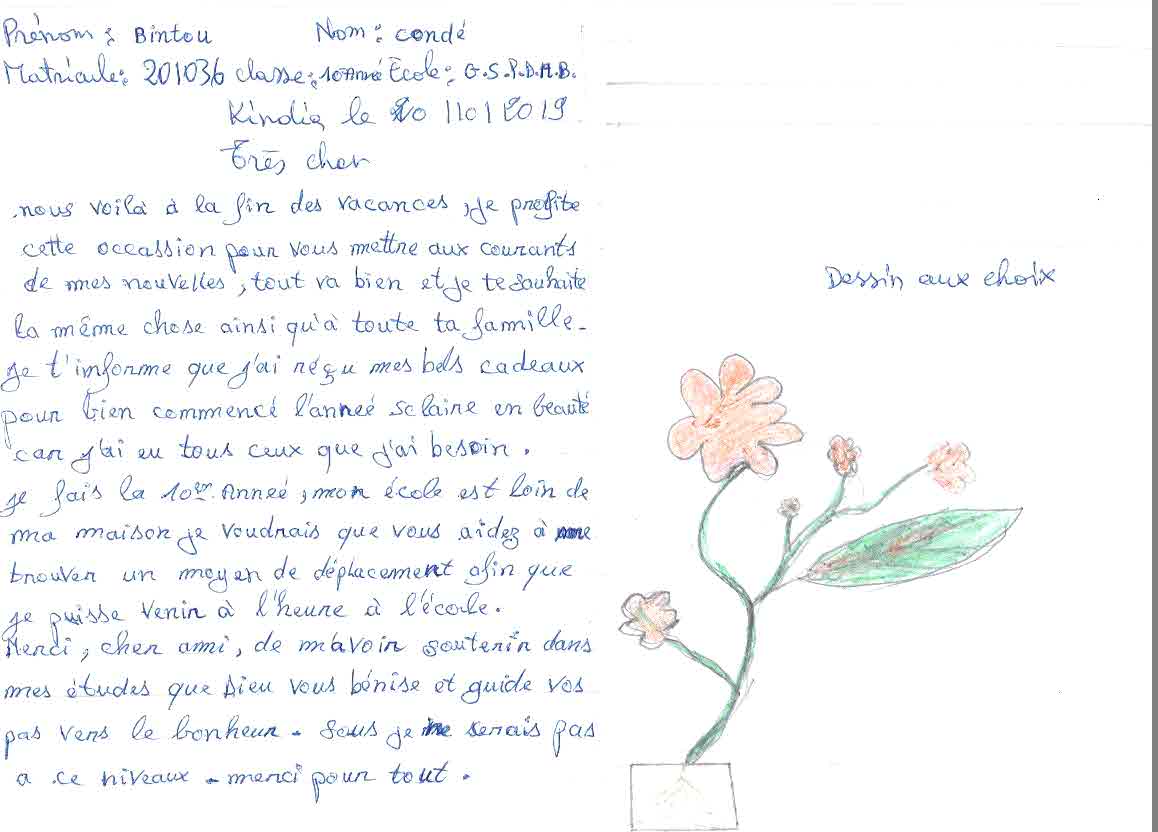 Prénom : Bintou Nom : condé
Matricule: 201036 classe: 10Anné École: G.S.P.D.A.B.
Kindia le 20/10/2019
très cher
nous voilà à la fin des vacances, je profite
cette occassion pour vous mettre aux courants
de mes nouvelles, tout va bien et je te souhaite
la même chose ainsi qu'à toute ta famille.
je t'informe que j'ai réçu mes bels cadeaux
pour bien commencé l'anneé sclaire en beauté
car j'ai eu tous ceux que j'ai besoin.
je fais la 10em Anneé, mon école est loin de
ma maison je voudrais que vous aidez à me
trouver un moyen de déplacement afin que
je puisse venir à l'heure à l'école.
Merci, cher ami, de m'avoir soutenir dans
mes études que Dieu vous bénise et guide vos
pas vers le bonheur. Sans je ne serais pas
a ce niveaux - merci pour tout.
Dessin aux choix